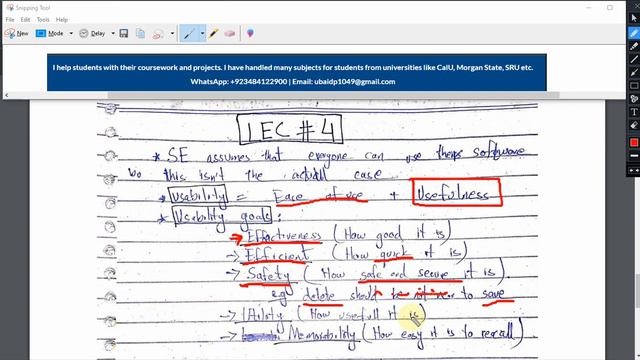 Snipping Tool
File Edit Tools Help
New Mode Delay
I help students with their coursework and projects. I have handled many subjects for students from universities like CalU, Morgan State, SRU etc.
WhatsApp: +923484122900 | Email: ubaidp1049@gmail.com
LEC # 4
* SE assumes that everyone can use software
this isn't the actual case
* Usability = Ease of use + Usefulness
* Usability goals:
→ Effectiveness (How good it is)
→ Efficient (How quick it is)
→ Safety (How safe and secure it is).
e.g delete should be not to save
→ Utility (How usefull it is)
→ Memorability (How easy it is to recall)